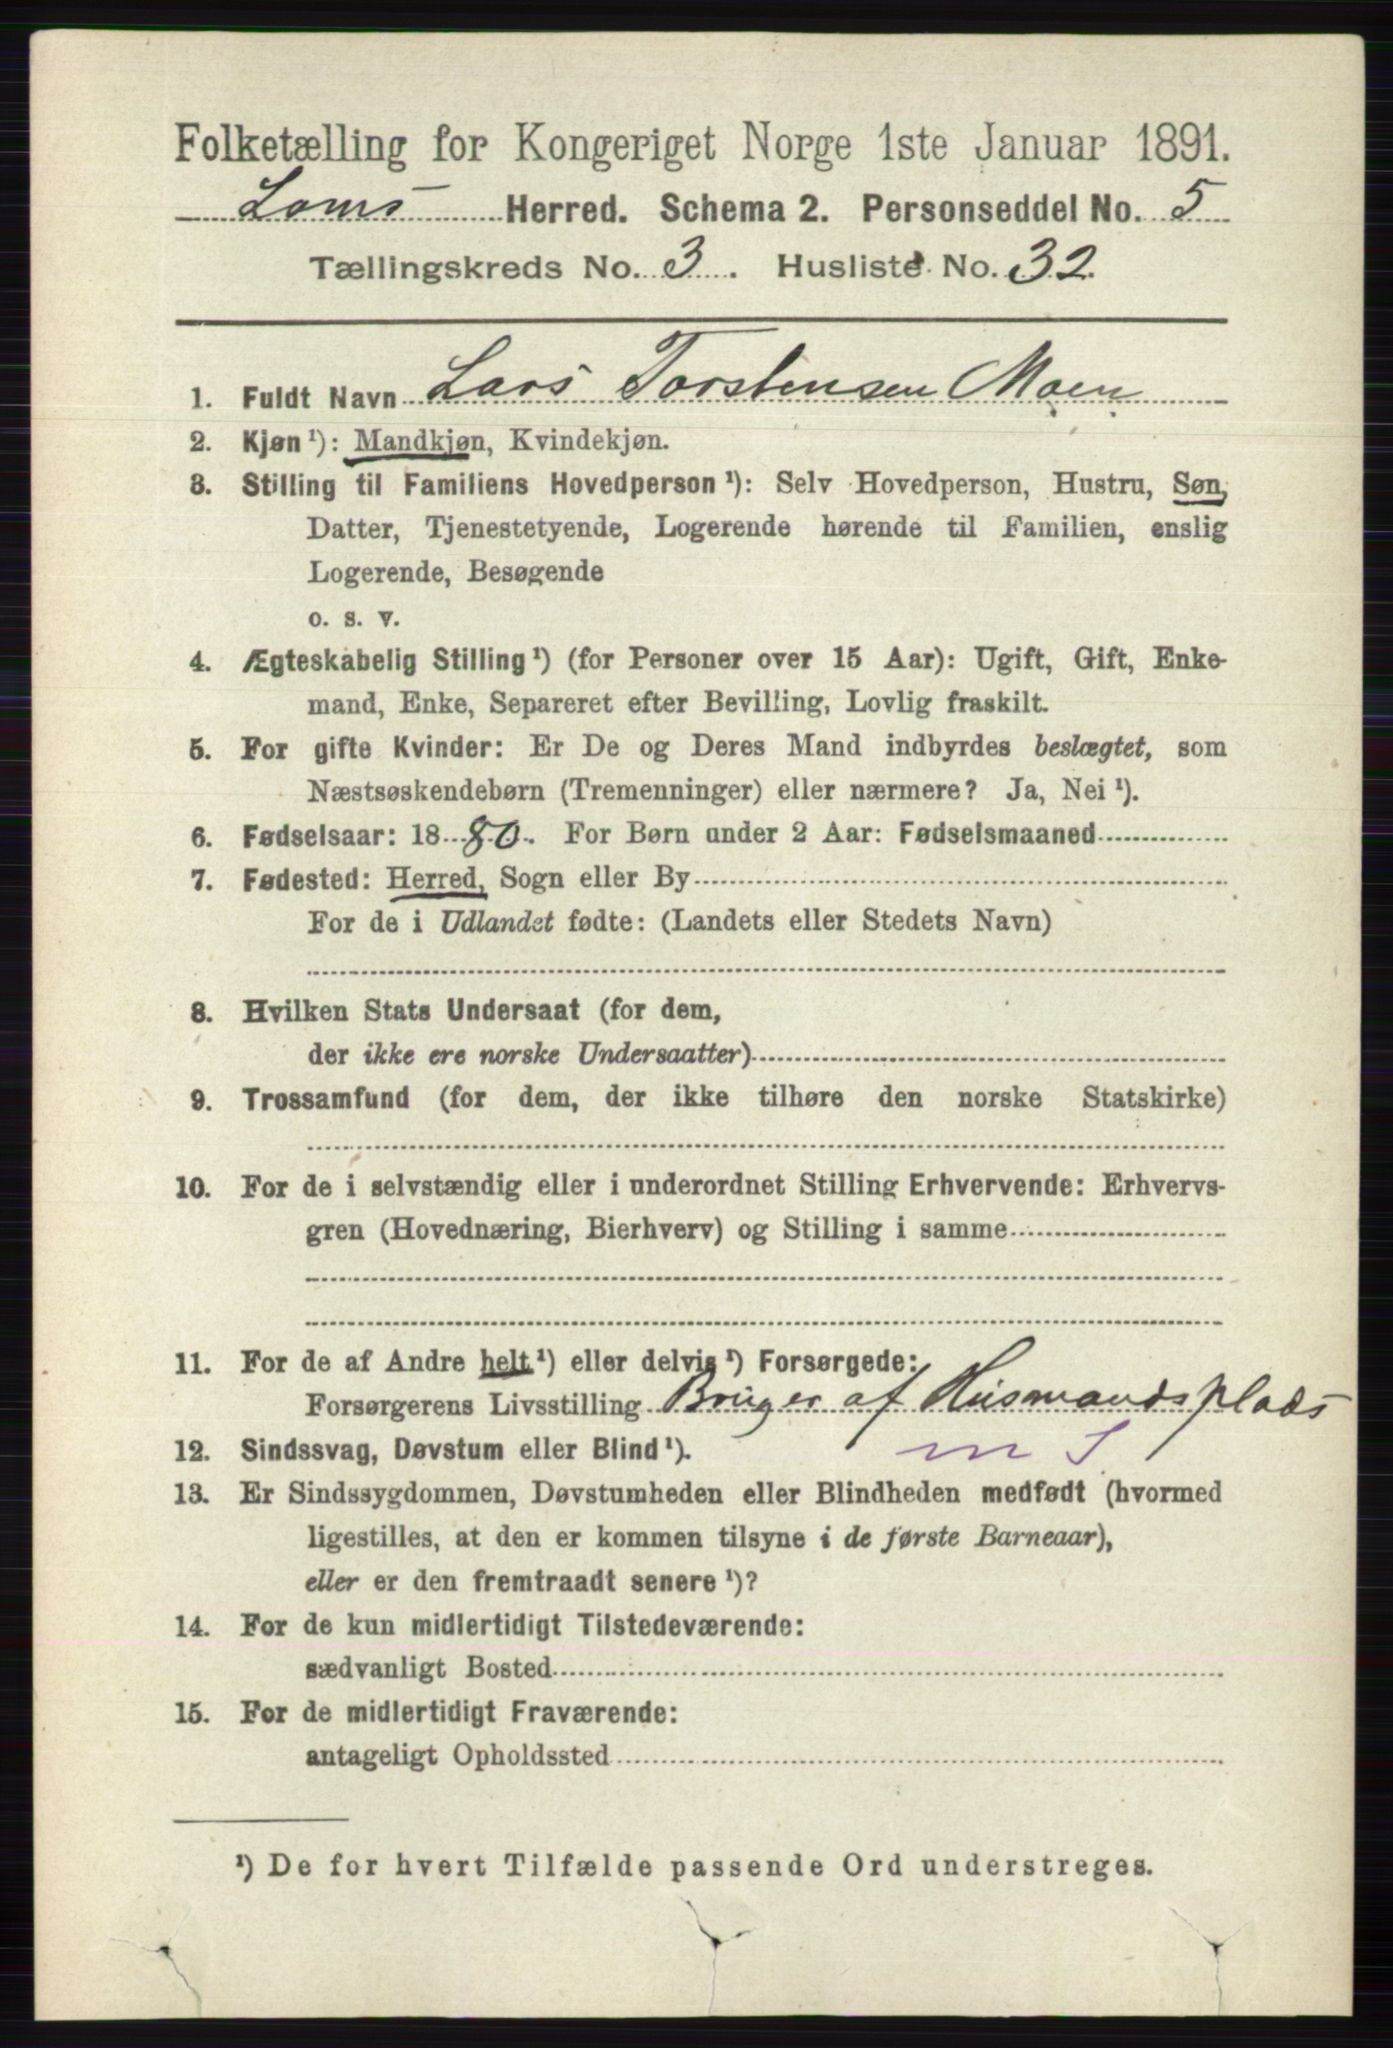 Folketælling for Kongeriget Norge 1ste Januar 1891.
Loms Herred. Schema 2. Personseddel No. 5
Tællingskreds No. 3. Husliste No. 32.
1. Fuldt Navn Lars Torstensen Moen
2. Kjøn ¹): Mandkjøn, Kvindekjøn.
3. Stilling til Familiens Hovedperson ¹): Selv Hovedperson, Hustru, Søn,
Datter, Tjenestetyende, Logerende hørende til Familien, enslig
Logerende, Besøgende
o. s. v.
4. Ægteskabelig Stilling ¹) (for Personer over 15 Aar): Ugift, Gift, Enke-
mand, Enke, Separeret efter Bevilling, Lovlig fraskilt.
5. For gifte Kvinder: Er De og Deres Mand indbyrdes beslægtet, som
Næstsøskendebørn (Tremenninger) eller nærmere? Ja, Nei ¹).
6. Fødselsaar: 1880. For Børn under 2 Aar: Fødselsmaaned
7. Fødested: Herred, Sogn eller By
For de i Udlandet fødte: (Landets eller Stedets Navn)
8. Hvilken Stats Undersaat (for dem,
der ikke ere norske Undersaatter)
9. Trossamfund (for dem, der ikke tilhøre den norske Statskirke)
10. For de i selvstændig eller i underordnet Stilling Erhvervende: Erhvervs-
gren (Hovednæring, Bierhverv) og Stilling i samme
11. For de af Andre helt ¹) eller delvis ¹) Forsørgede:
Forsørgerens Livsstilling Bruger af Husmandsplads
12. Sindssvag, Døvstum eller Blind ¹). m S
13. Er Sindssygdommen, Døvstumheden eller Blindheden medfødt (hvormed
ligestilles, at den er kommen tilsyne i de første Barneaar),
eller er den fremtraadt senere ¹)?
14. For de kun midlertidigt Tilstedeværende:
sædvanligt Bosted
15. For de midlertidigt Fraværende:
antageligt Opholdssted
¹) De for hvert Tilfælde passende Ord understreges.